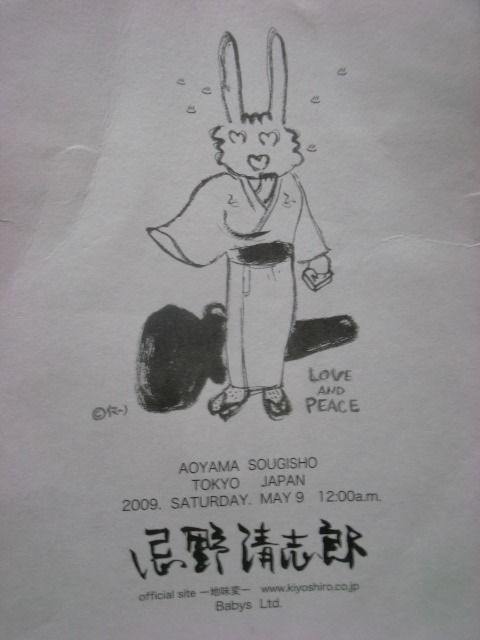 LOVE
AND
PEACE
AOYAMA SOUGISHO
TOKYO JAPAN
2009. SATURDAY. MAY 9 12:00a.m.
忌野清志郎
official site ー地味変ー www.kiyoshiro.co.jp
Babys Ltd.